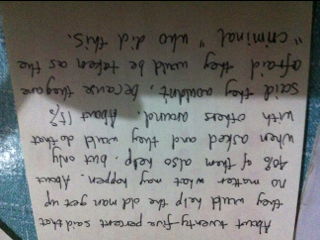 About twenty-five percent said that
they would help the old man get up
no matter what may happen. About
40% of them also help, but only
when asked and they would do that
with others around. About 15%
said they wouldn't, because they are
afraid they would be taken as the
"criminal" who did this.